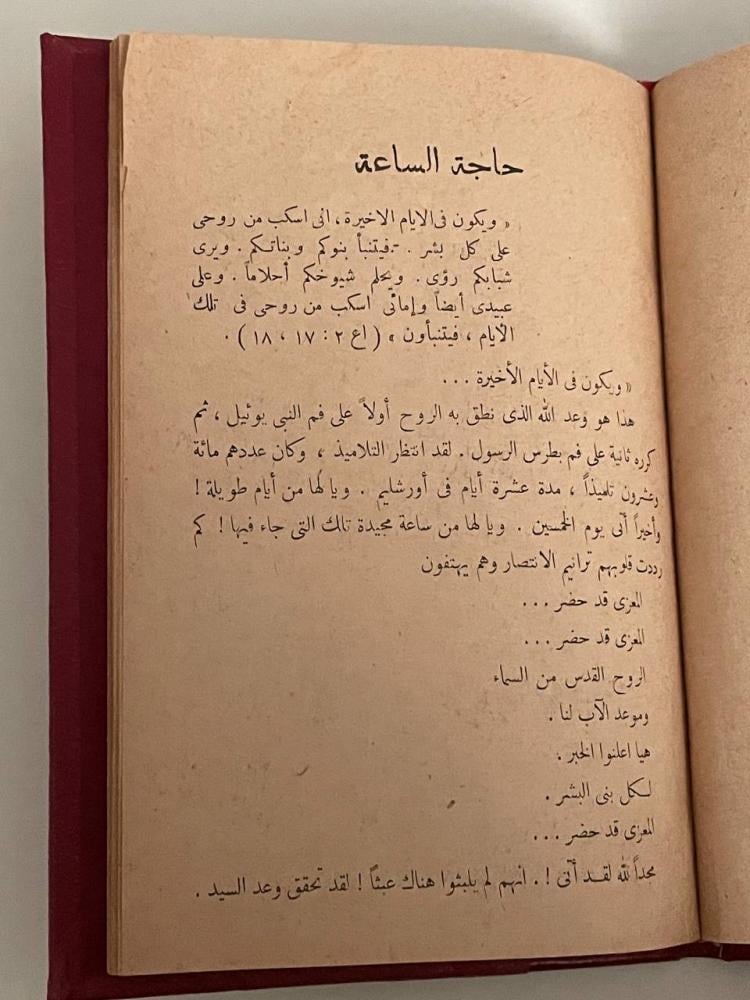 حاجة الساعة
« ويكون فى الايام الاخيرة ، انى اسكب من روحى
على كل بشر . فيتنبأ بنوكم وبناتكم . ويرى
شبابكم رؤى . ويحلم شيوخكم أحلاماً . وعلى
عبيدى أيضاً وإمائى اسكب من روحى فى تلك
الأيام ، فيتنبأون » ( اع ٢ : ١٧ ، ١٨ ) .
« ويكون فى الأيام الأخيرة ...
هذا هو وعد الله الذى نطق به الروح أولاً على فم النبى يوئيل ، ثم
كرره ثانية على فم بطرس الرسول . لقد انتظر التلاميذ ، وكان عددهم مائة
وعشرون تلميذاً ، مدة عشرة أيام فى أورشليم . ويا لها من أيام طويلة !
وأخيراً أتى يوم الخمسين . ويا لها من ساعة مجيدة تلك التى جاء فيها ! كم
رددت قلوبهم ترانيم الانتصار وهم يهتفون
المعزى قد حضر ...
المعزى قد حضر ...
الروح القدس من السماء
وموعد الآب لنا .
هيا اعلنوا الخبر .
لكل بنى البشر .
المعزى قد حضر ...
مجداً لله لقد أتى ! . انهم لم يلبثوا هناك عبثاً ! لقد تحقق وعد السيد .